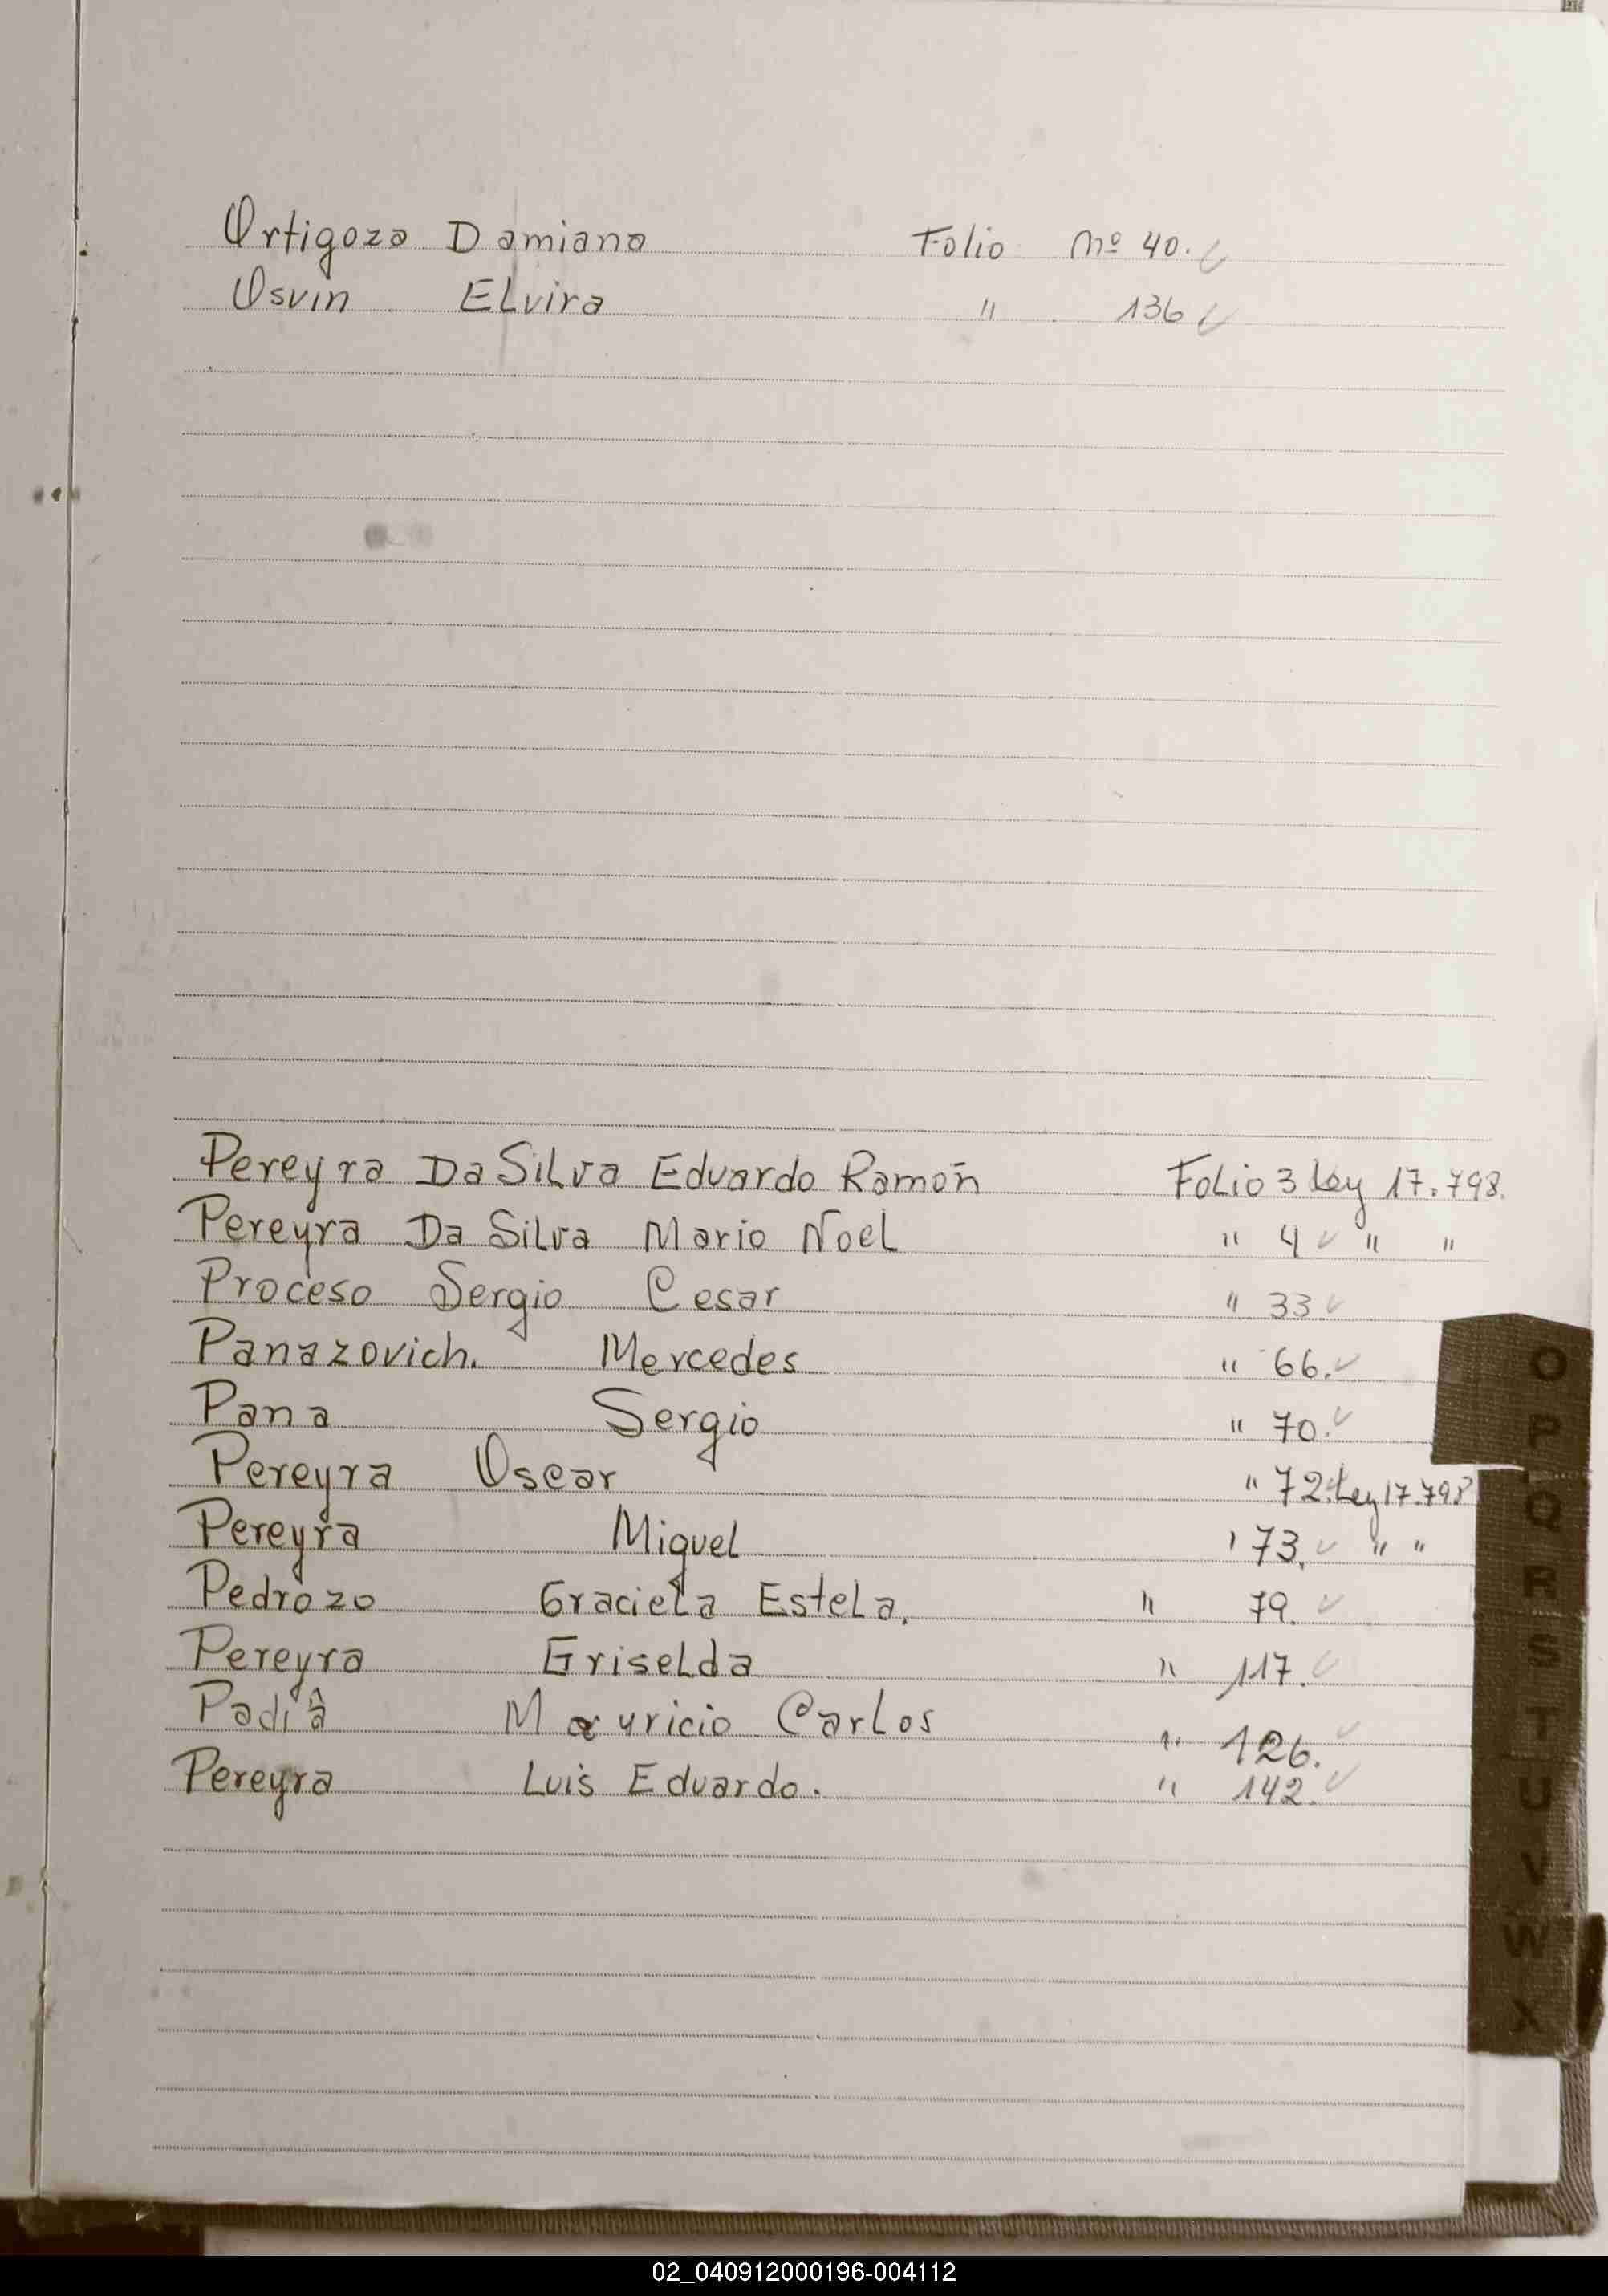 Ortigoza Damiana Folio Nº 40. ✓
Osvin Elvira " 136 ✓
Pereyra Da Silva Eduardo Ramón Folio 3 Ley 17.798.
Pereyra Da Silva Mario Noel " 4 ✓ " "
Proceso Sergio Cesar " 33 ✓
Panazovich. Mercedes " 66. ✓
Pana Sergio " 70. ✓
Pereyra Oscar " 72. Ley 17.798
Pereyra Miguel ' 73. ✓ " "
Pedrozo Graciela Estela. " 79. ✓
Pereyra Griselda " 117. ✓
Padiâ Mauricio Carlos " 126. ✓
Pereyra Luis Eduardo. " 142. ✓
O
P
Q
R
S
T
U
V
W
X
02_040912000196-004112